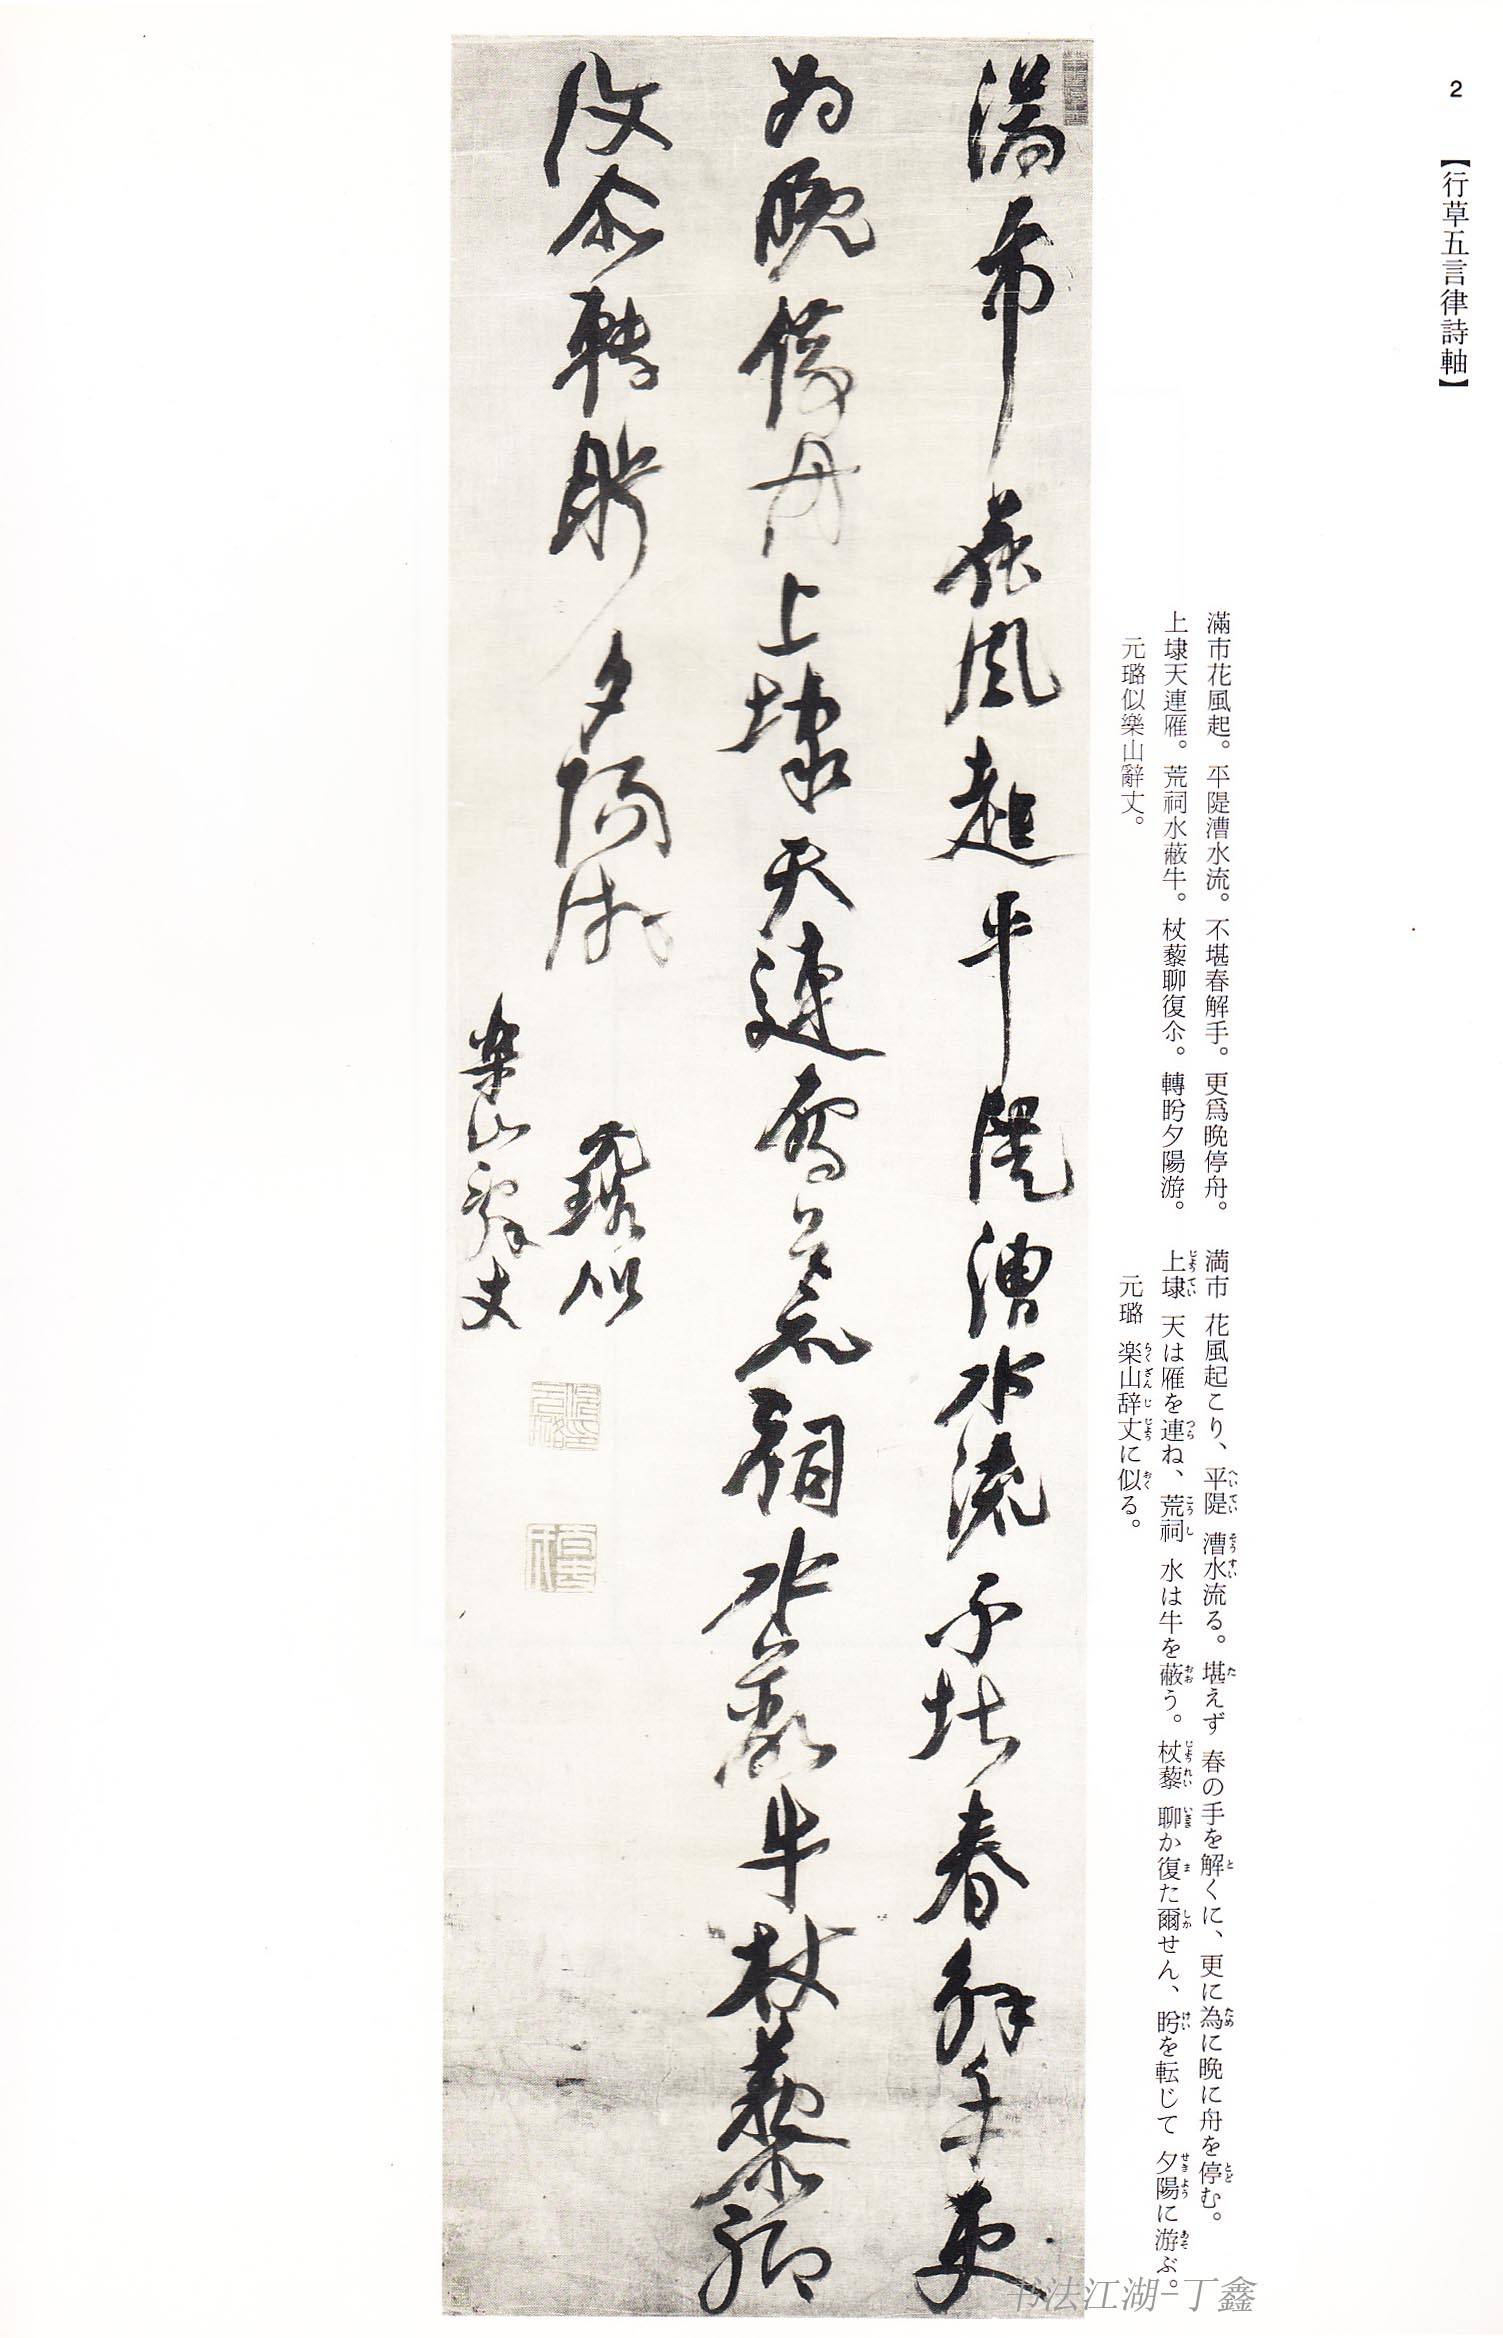 2
【行草五言律詩軸】
滿市花風起。平隄漕水流。不堪春解手。更爲晩停舟。
上埭天連雁。荒祠水蔽牛。杖藜聊復尒。轉盻夕陽游。
元璐似樂山辭丈。
満市 花風起こり、平隄 漕水流る。堪えず 春の手を解くに、更に為に晩に舟を停む。
上埭 天は雁を連ね、荒祠 水は牛を蔽う。杖藜 聊か復た爾せん、盻を転じて 夕陽に游ぶ。
元璐 楽山辞丈に似る。
滿市花風起平隄漕水流不堪春解手更
為晚停舟上埭天連雁荒祠水蔽牛杖藜聊
復尒轉盻夕陽游
元璐似
樂山辭丈
书法江湖-丁鑫